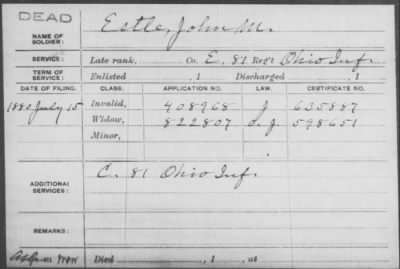 DEAD
NAME OF SOLDIER: Estle, John M.
SERVICE: Late rank, Co. E, 81 Reg't Ohio Inf.
TERM OF SERVICE: Enlisted , 1 Discharged , 1
DATE OF FILING. CLASS. APPLICATION NO. LAW. CERTIFICATE NO.
1880 July 15 Invalid, 408968 J 635887
Widow, 822807 d.g. 598651
Minor,
ADDITIONAL SERVICES: C. 81 Ohio Inf.
REMARKS:
Died , 1 , at